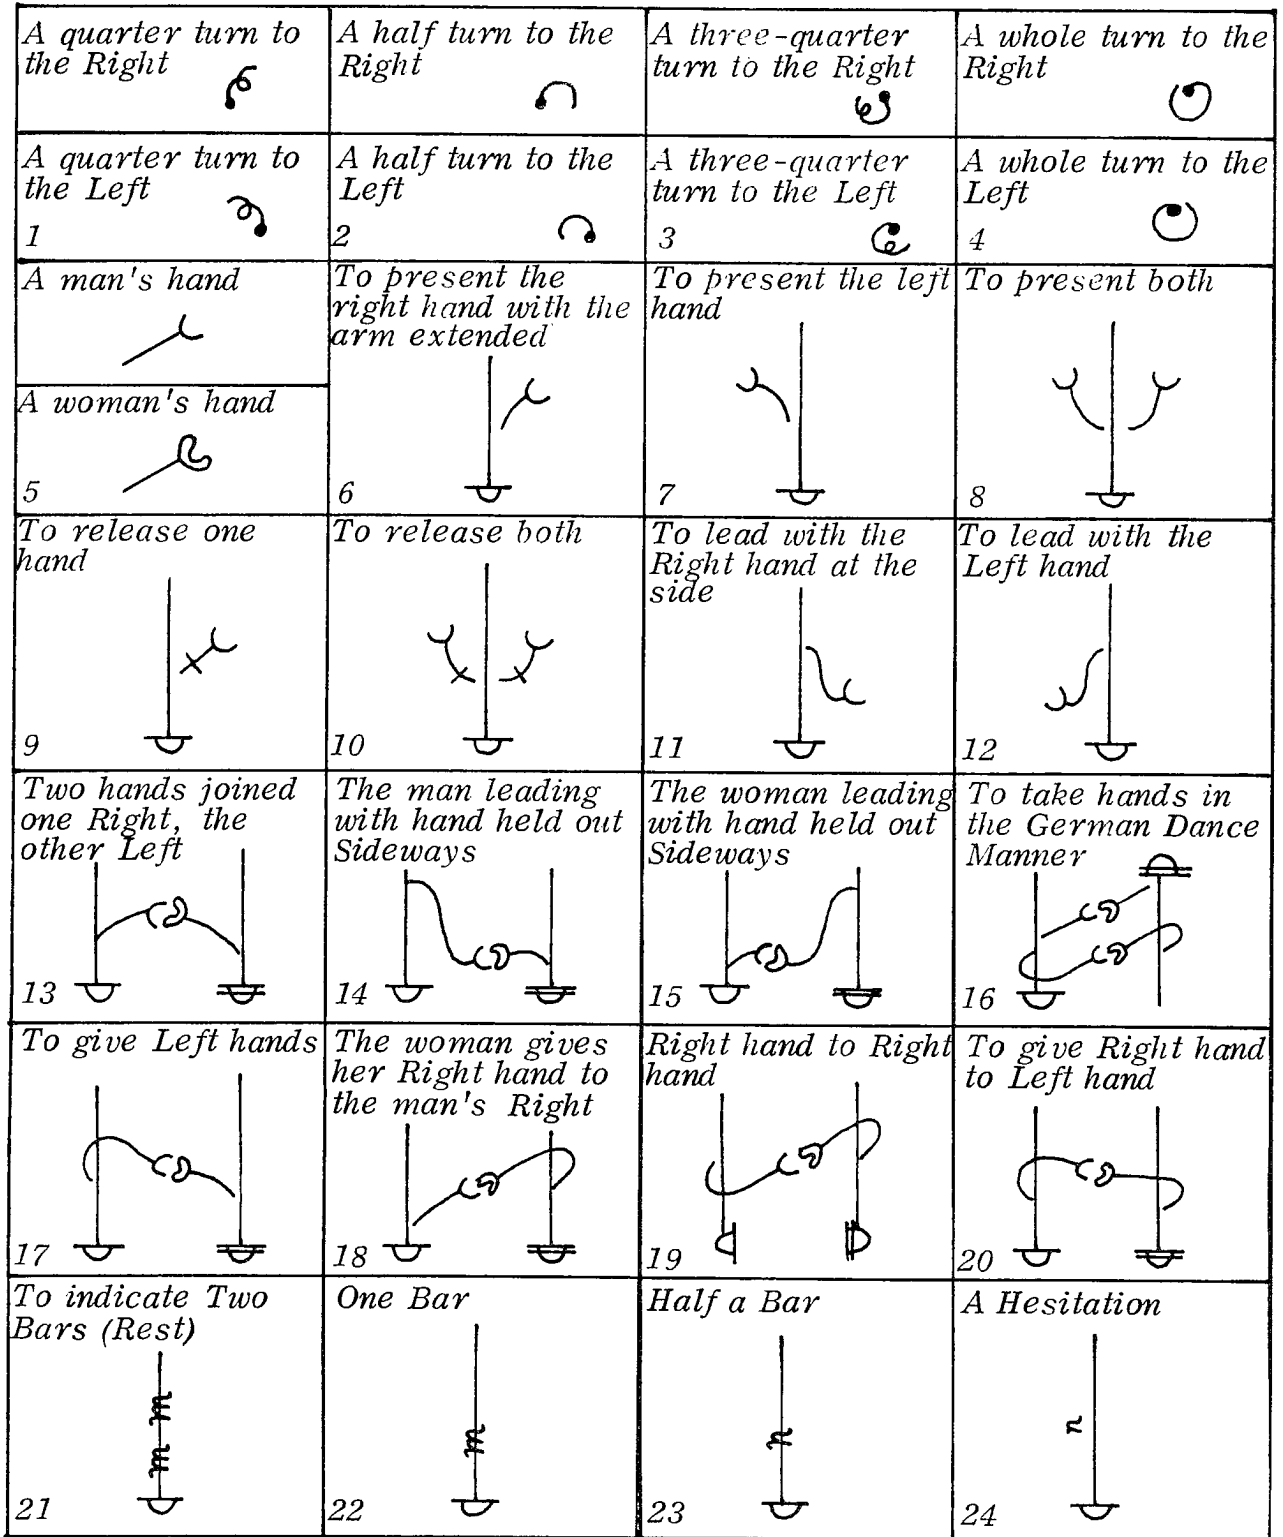 A quarter turn to
the Right
A half turn to the
Right
A three-quarter
turn to the Right
A whole turn to the
Right
A quarter turn to
the Left
1
A half turn to the
Left
2
A three-quarter
turn to the Left
3
A whole turn to the
Left
4
A man's hand
A woman's hand
5
To present the
right hand with the
arm extended
6
To present the left
hand
7
To present both
8
To release one
hand
9
To release both
10
To lead with the
Right hand at the
side
11
To lead with the
Left hand
12
Two hands joined
one Right, the
other Left
13
The man leading
with hand held out
Sideways
14
The woman leading
with hand held out
Sideways
15
To take hands in
the German Dance
Manner
16
To give Left hands
17
The woman gives
her Right hand to
the man's Right
18
Right hand to Right
hand
19
To give Right hand
to Left hand
20
To indicate Two
Bars (Rest)
m
m
21
One Bar
m
22
Half a Bar
n
23
A Hesitation
n
24